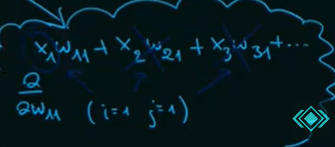 x₁w₁₁ + x₂w₂₁ + x₃w₃₁ + ...
∂
∂w₁₁ (i=1 j=1)